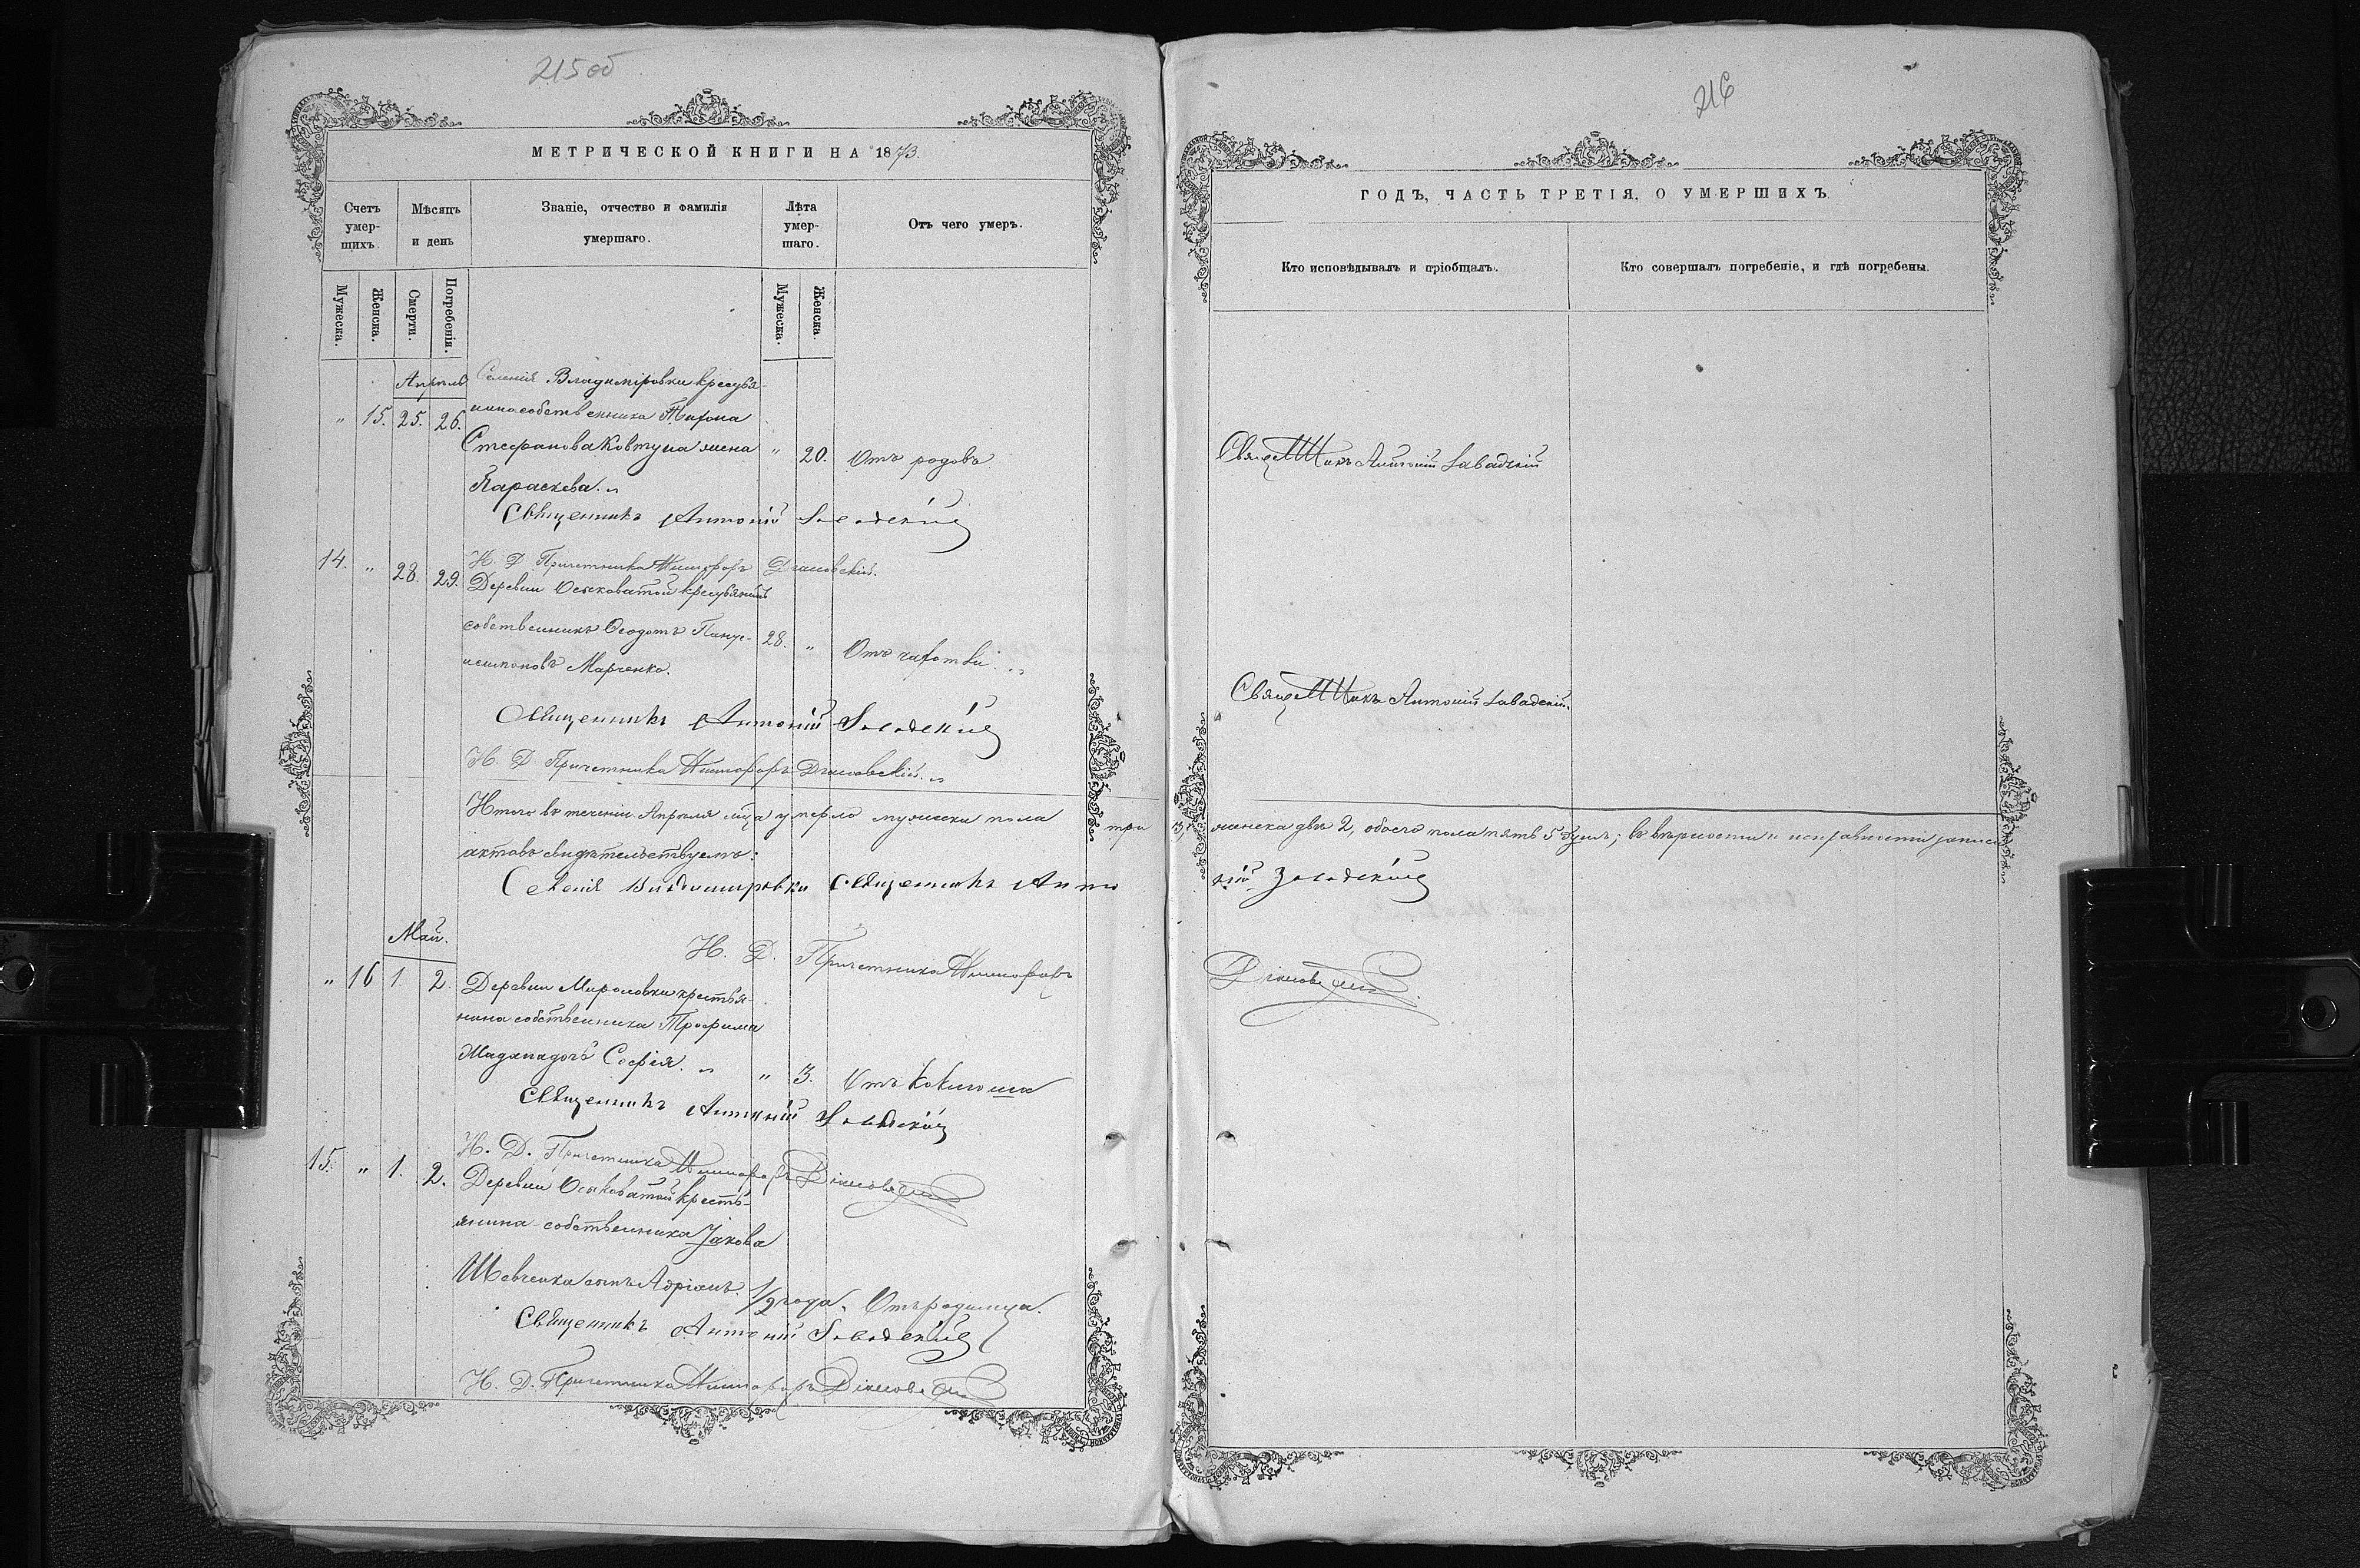 215 об
МЕТРИЧЕСКОЙ КНИГИ НА 1873.
Счетъ умершихъ.
Мѣсяцъ и день
Званіе, отчество и фамилія умершаго.
Лѣта умершаго.
Отъ чего умеръ.
Мужеска.
Женска.
Смерти.
Погребенія.
Мужеска.
Женска.
Апрѣль
Селенія Владиміровки крестья-
" 15. 25. 26. нина собственника Тихона
Стефанова Ковтуна жена " 20. Отъ родовъ
Параскева.
Священникъ Антоній Завадскій
14. " 28. 29. И. Д. Причетника Никифоръ
Деревни Осиковатой крестьянинъ
собственникъ Ѳеодотъ 28. " Отъ чахотки
Марченко.
Священникъ Антоній Завадскій
И. Д. Причетника Никифоръ
Итого въ теченіи Апрѣля мца умерло мужеска пола три
актовъ свидѣтельствуемъ:
Селенія Владимировки Священникъ Анто
Май.
И. Д. Причетника Никифоръ
" 16 1. 2. Деревни Мироновки крестья-
нина собственника Трофима
дочь Софія. " 3. Отъ коклюша
Священникъ Антоній Завадскій
И. Д. Причетника Никифоръ
15. " 1. 2. Деревни Осиковатой кресть-
янина-собственника Іакова
Шевченка сынъ Адріанъ. 1/2 года. Отъ родимца.
Священникъ Антоній Завадскій
И. Д. Причетника Никифоръ
216
ГОДЪ, ЧАСТЬ ТРЕТІЯ, О УМЕРШИХЪ
Кто исповѣдывалъ и пріобщалъ.
Кто совершалъ погребеніе, и гдѣ погребены.
Священникъ Антоній Завадскій
Священникъ Антоній Завадскій.
3, женска двѣ 2, обоего пола пять 5 душъ; въ вѣрности и исправности записи
ній Завадскій